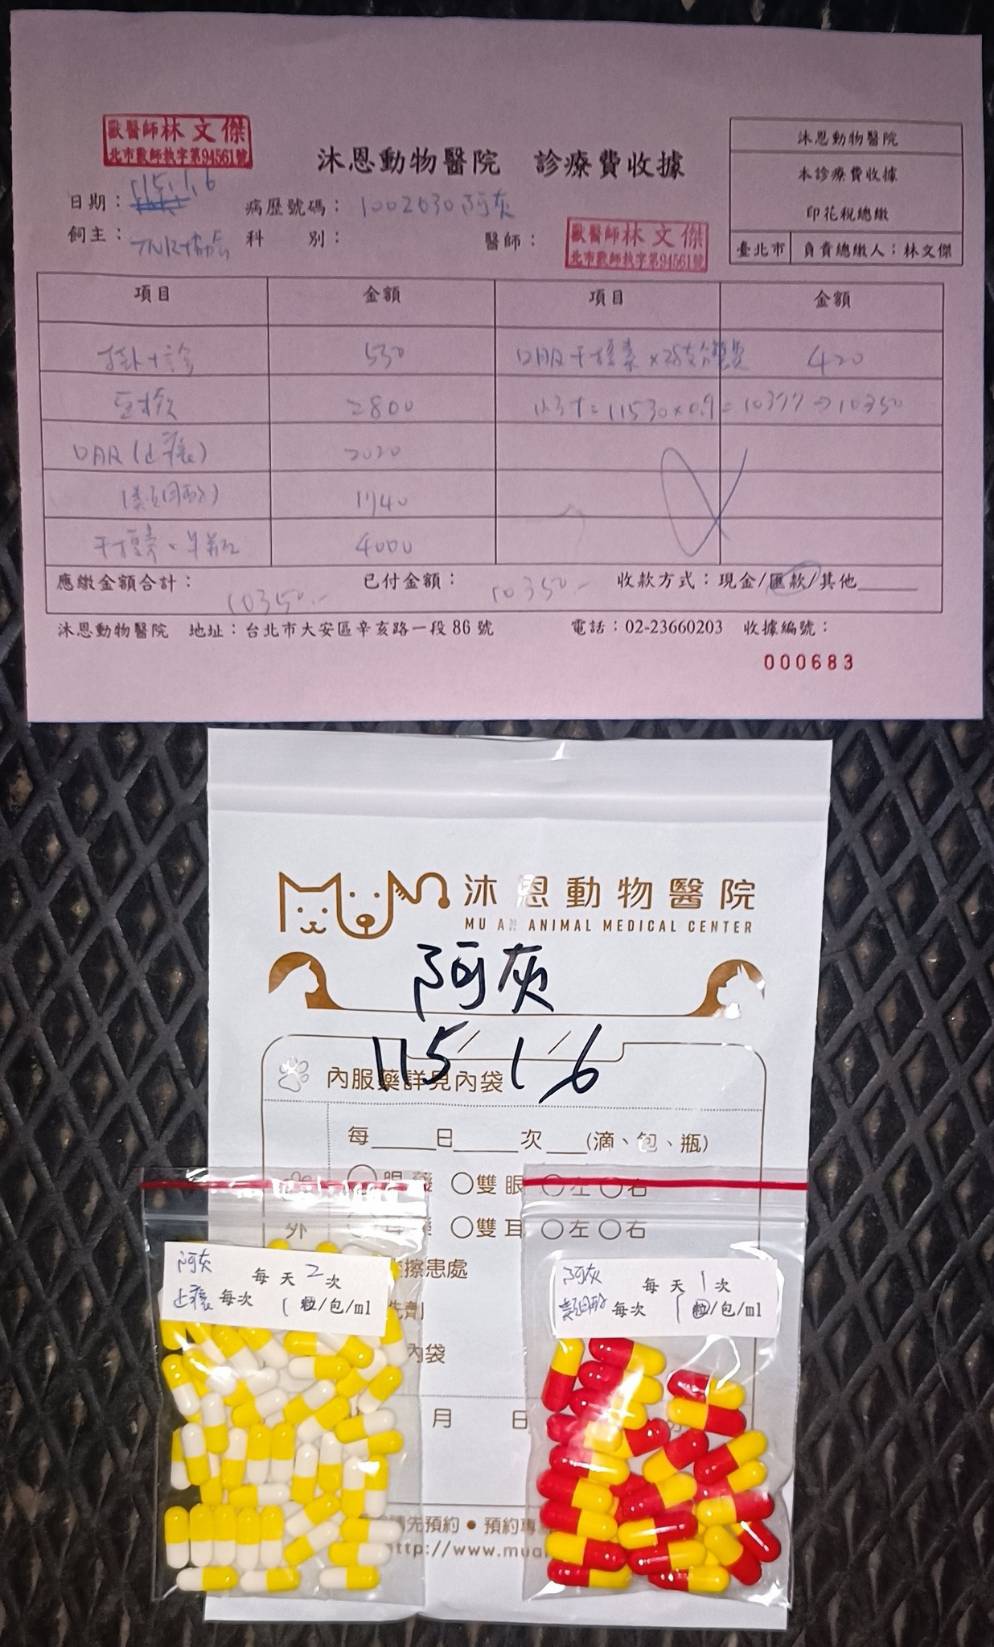 獸醫師林文傑
北市獸師執字第94561號
沐恩動物醫院 診療費收據
沐恩動物醫院
本診療費收據
印花稅總繳
臺北市 負責總繳人：林文傑
日期： 115.1.6
病歷號碼： 1002030 阿灰
飼主： TNR協會 科 別： 醫師：
獸醫師林文傑
北市獸師執字第94561號
項目 金額 項目 金額
掛+診 530 干擾素 420
血檢 2800 11530×0.9=10377→10350
(止癢) 2020
(類固醇) 1740
干擾素 4000
應繳金額合計： 10350.- 已付金額： 10350.- 收款方式：現金/匯款/其他
沐恩動物醫院 地址：台北市大安區辛亥路一段86號 電話：02-23660203 收據編號：
000683
沐恩動物醫院
MU AN ANIMAL MEDICAL CENTER
阿灰
115/1/6
內服藥詳見內袋
每 日 次 (滴、包、瓶)
眼藥 雙眼 左 右
外 雙耳 左 右
擦患處
洗劑
內袋
月 日
請先預約 • 預約專
http://www.mua
阿灰 每天2次
止癢 每次 1 粒/包/ml
阿灰 每天1次
類固醇 每次 1 粒/包/ml